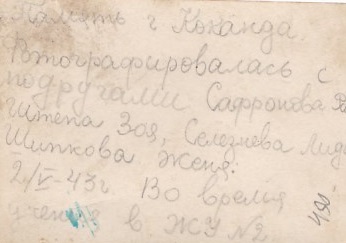 Память г Коканда.
Фтографировалась с
подругами Сафронова
Штепа Зоя, Селезнева Лид
Шипкова Женя.
2/V-43г. Во время
учения в ЖУ №2
490